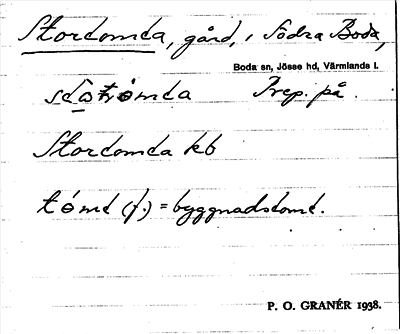 Stortomta, gård, i Södra Boda,
Boda sn, Jösse hd, Värmlands l.
Prep. på.
Stortomta kb
tómt (f.) = byggnadstomt.
P. O. GRANÉR 1938.